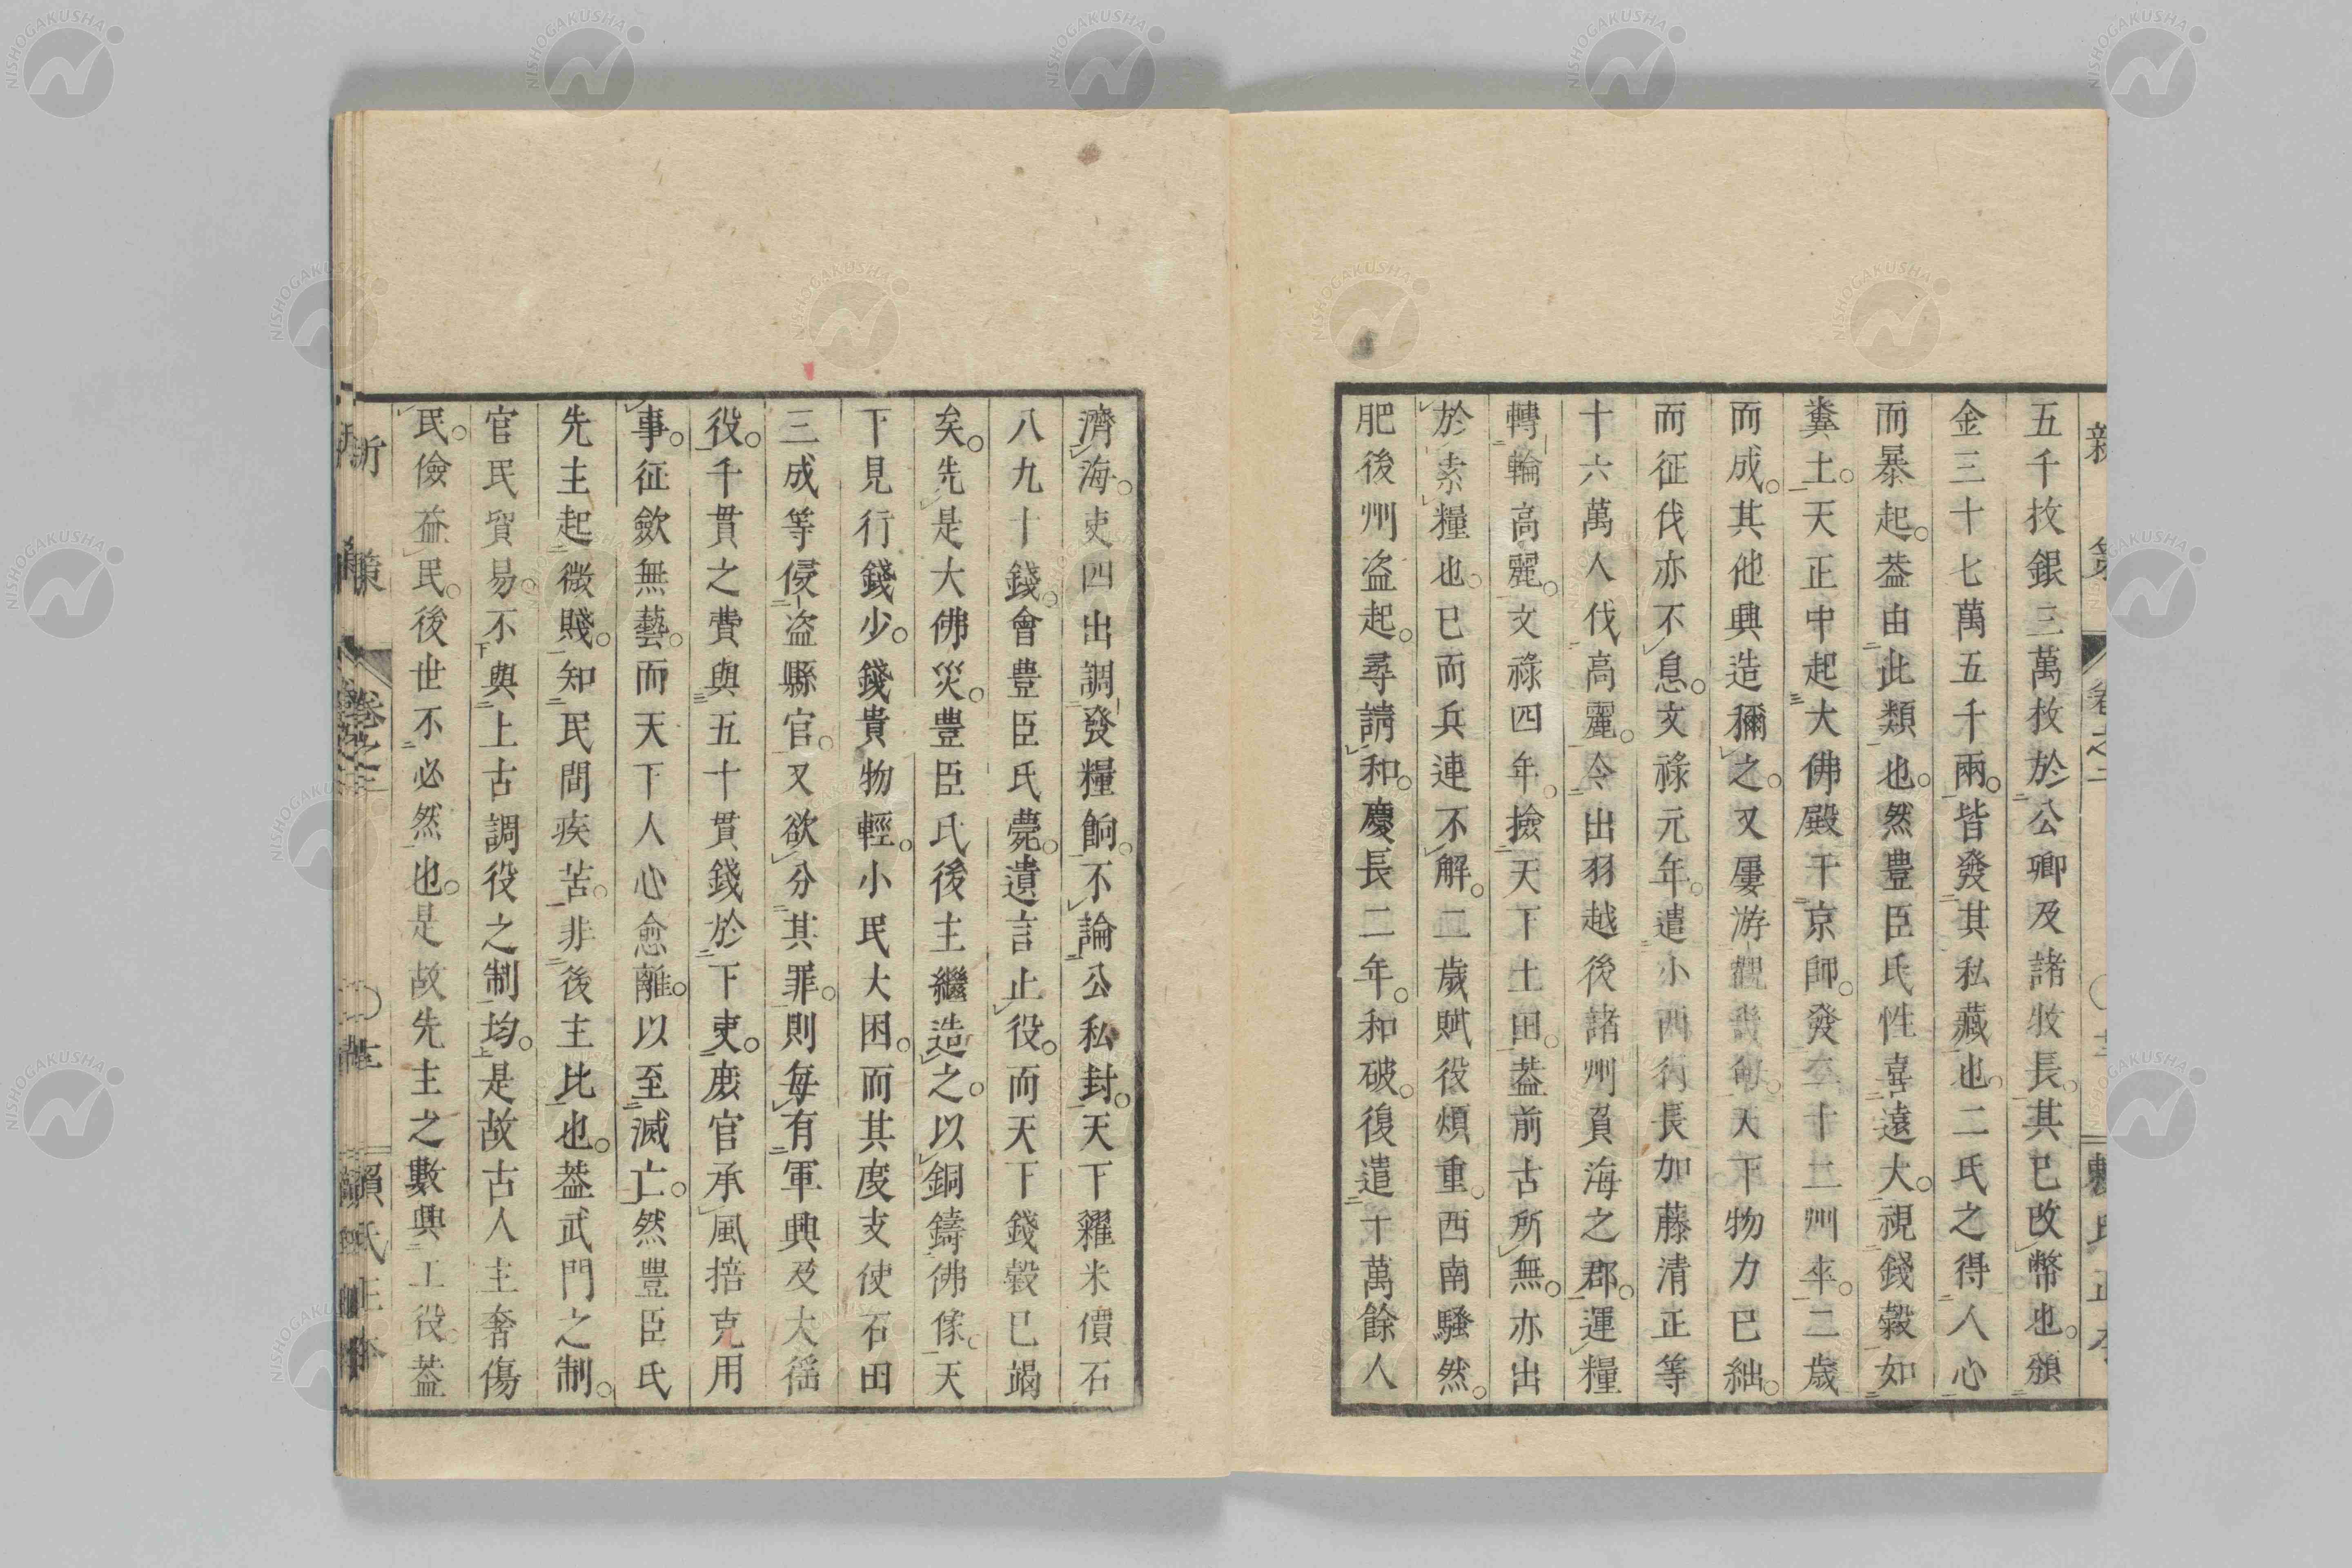 五千枚銀三萬枚於公卿及諸牧長。其已改幣也。頒
金三十七萬五千兩。皆發其私藏也。二氏之得人心
而暴起。葢由此類也。然豊臣氏性喜遠大。視錢穀如
糞土。天正中起大佛殿于京師。發二十二州卒。二歲
而成。其他興造稱之。又屢游觀畿甸。天下物力已絀。
而征伐亦不息。文祿元年。遣小西行長加藤清正等
十六萬人伐高麗。令出羽越後諸州負海之郡。運糧
轉輸高麗。文祿四年。撿天下土田。葢前古所無。亦出
於索糧也。已而兵連不解。二歲賦役煩重。西南騷然。
肥後州盜起。尋請和。慶長二年。和破。復遣十萬餘人
濟海。吏四出調發糧餉。不論公私封。天下糴米價石
八九十錢。會豊臣氏薨。遺言止役。而天下錢穀已竭
矣。先是大佛災。豊臣氏後主繼造之。以銅鑄佛像。天
下見行錢少。錢貴物輕。小民大困。而其度支使石田
三成等侵盜縣官。又欲分其罪。則每有軍興及大徭
役。千貫之費與五十貫錢於下吏。廋官承風掊克用
事。征斂無藝。而天下人心愈離。以至滅亡。然豊臣氏
先主起微賤。知民間疾苦。非後主比也。葢武門之制。
官民貿易不與上古調役之制均。是故古人主奢傷
民。儉益民。後世不必然也。是故先主之數興工役。葢
新策
卷之三
賴氏正本